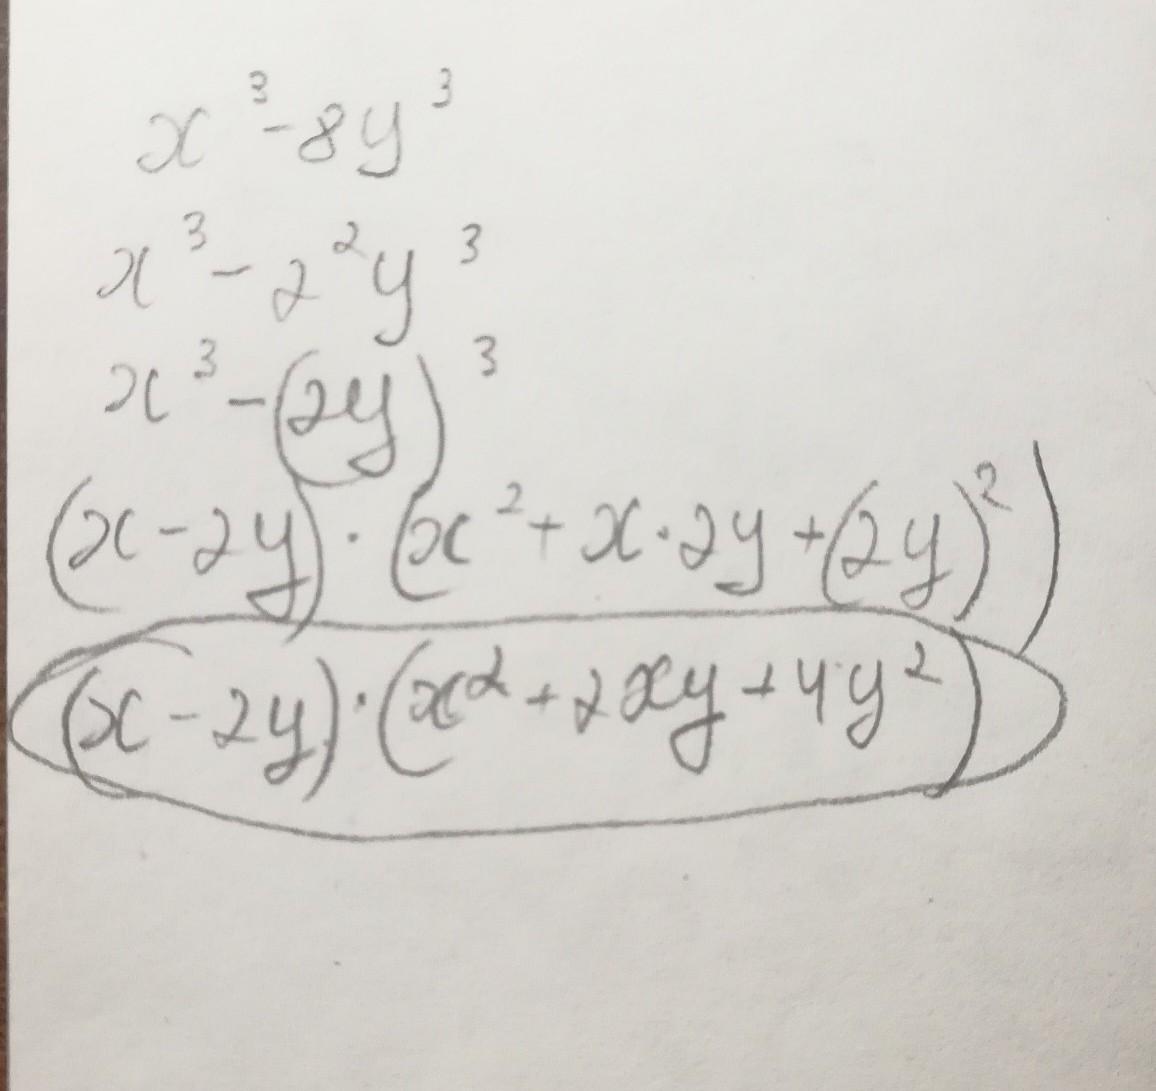 x³-8y³
x³-2²y³
x³-(2y)³
(x-2y)·(x²+x·2y+(2y)²)
(x-2y)·(x²+2xy+4y²)